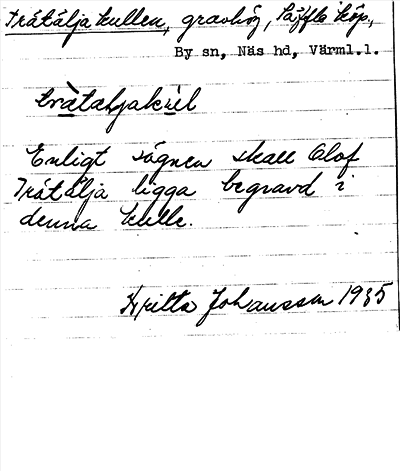 Tråtälja kullen, gravhög, Säffle köp.,
By sn, Näs hd, Värml.l.
tråtäljakul
Enligt sägnen skall Olof
Trätälja ligga begravd i
denna kulle.
Kritta Johansson 1935